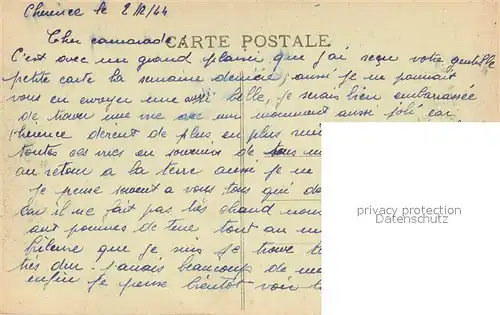 Cherence le 2/12/44
Cher camarade,
CARTE POSTALE
C'est avec un grand plaisir que j'ai reçu votre gentille
petite carte la semaine dernière, aussi je ne pouvait
vous en envoyer une aussi belle, je serais bien embarassée
de trouver une vue avec un monument aussi joli car
Cherence devient de plus en plus
toutes ces vues en souvenir de tous
au retour a la terre aussi je ne
Je pense souvent a vous tous qui
car il ne fait pas très chaud
aux pommes de terre tout au
frileuse que je suis je trouve
très dur. J'aurais beaucoup de
enfin je pense bientôt voir
privacy protection
Datenschutz